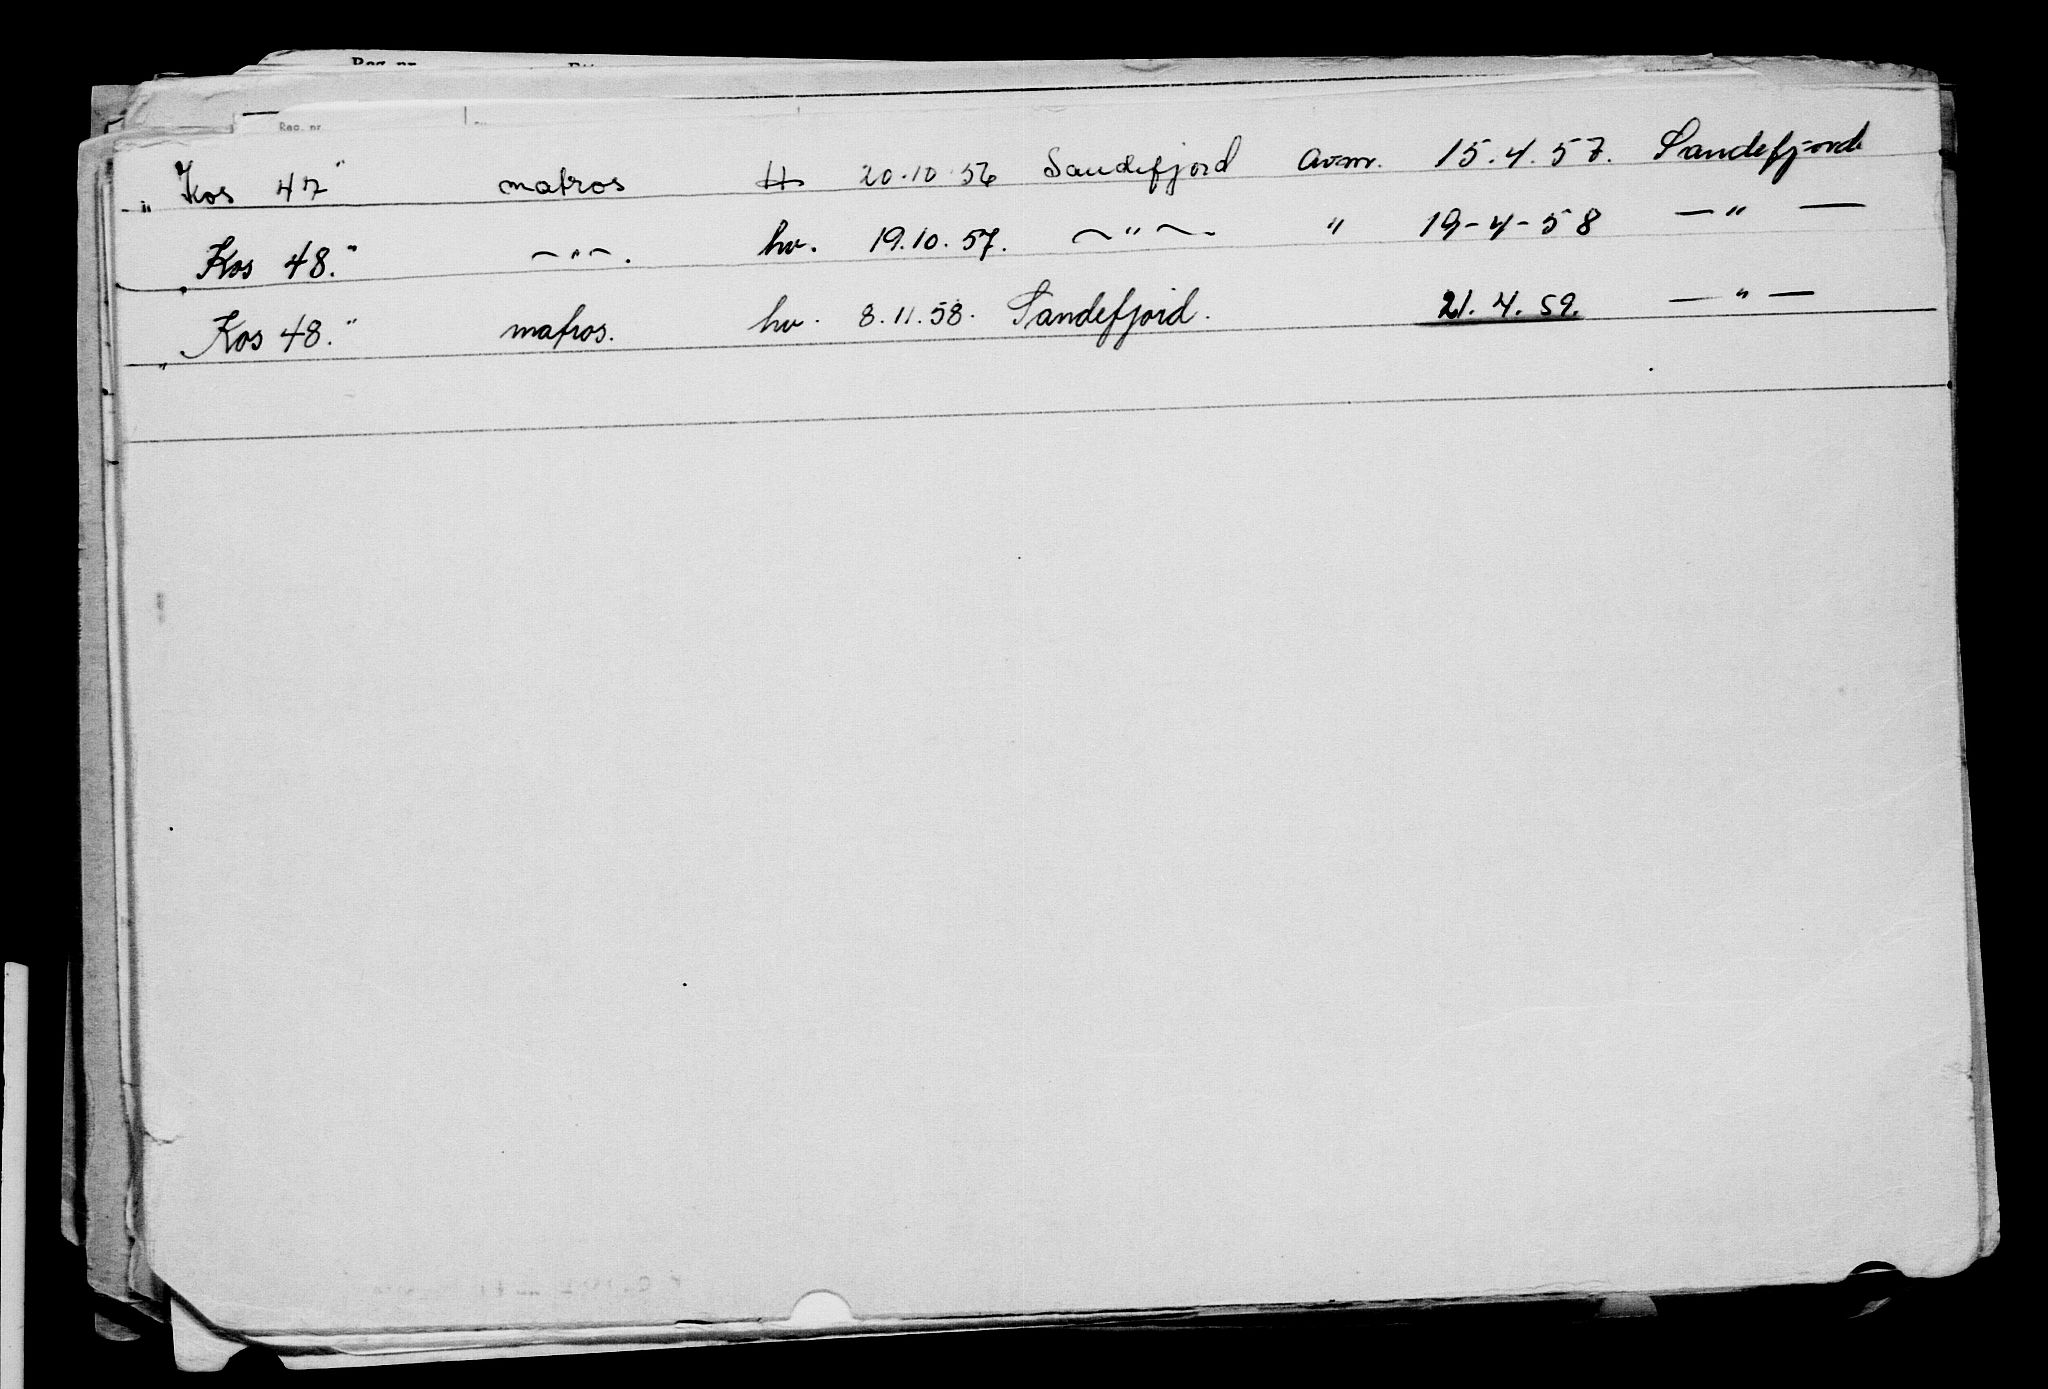 Reg. nr.
„Kos 47" matros H 20.10.56 Sandefjord avm. 15.4.57. Sandefjord
„Kos 48." —"—. hv. 19.10.57. —"—. " 19-4-58 —"—
„Kos 48." matros. hv. 8.11.58. Sandefjord. 21.4.59. —"—